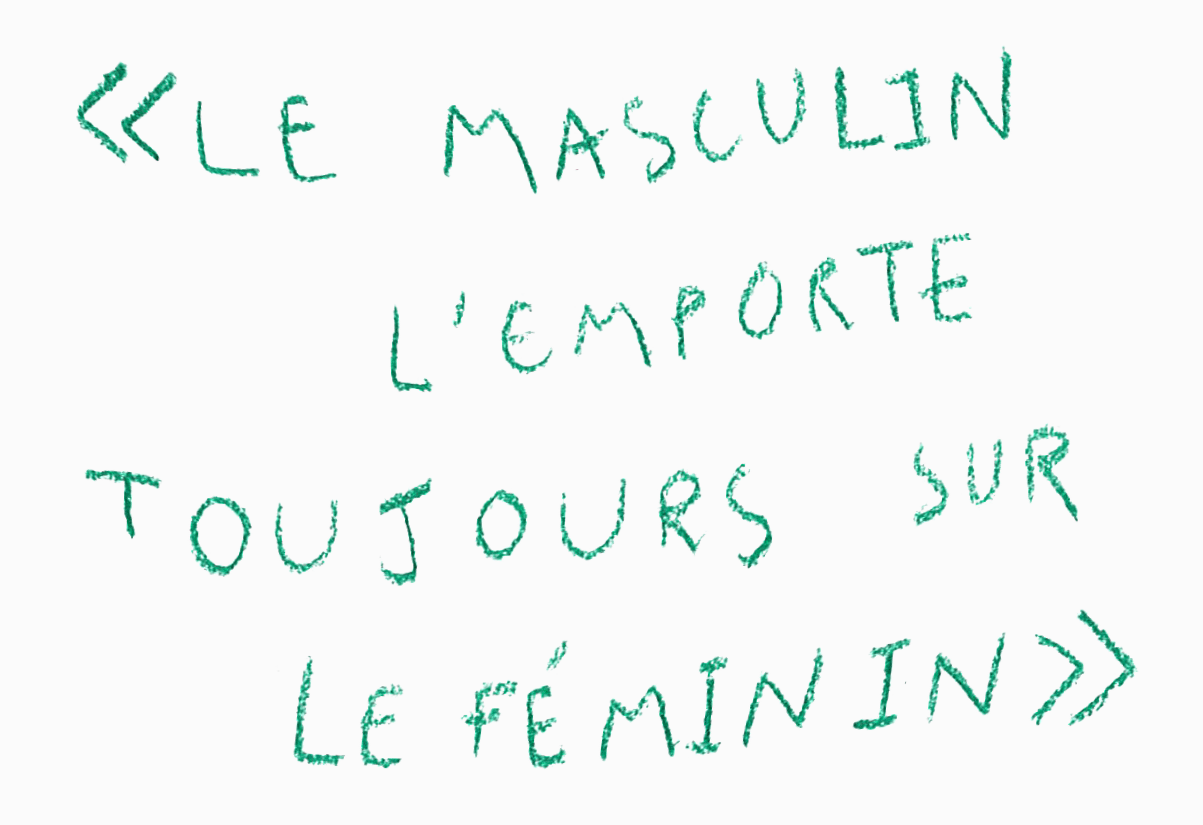 «LE MASCULIN
L'EMPORTE
TOUJOURS SUR
LE FÉMININ»